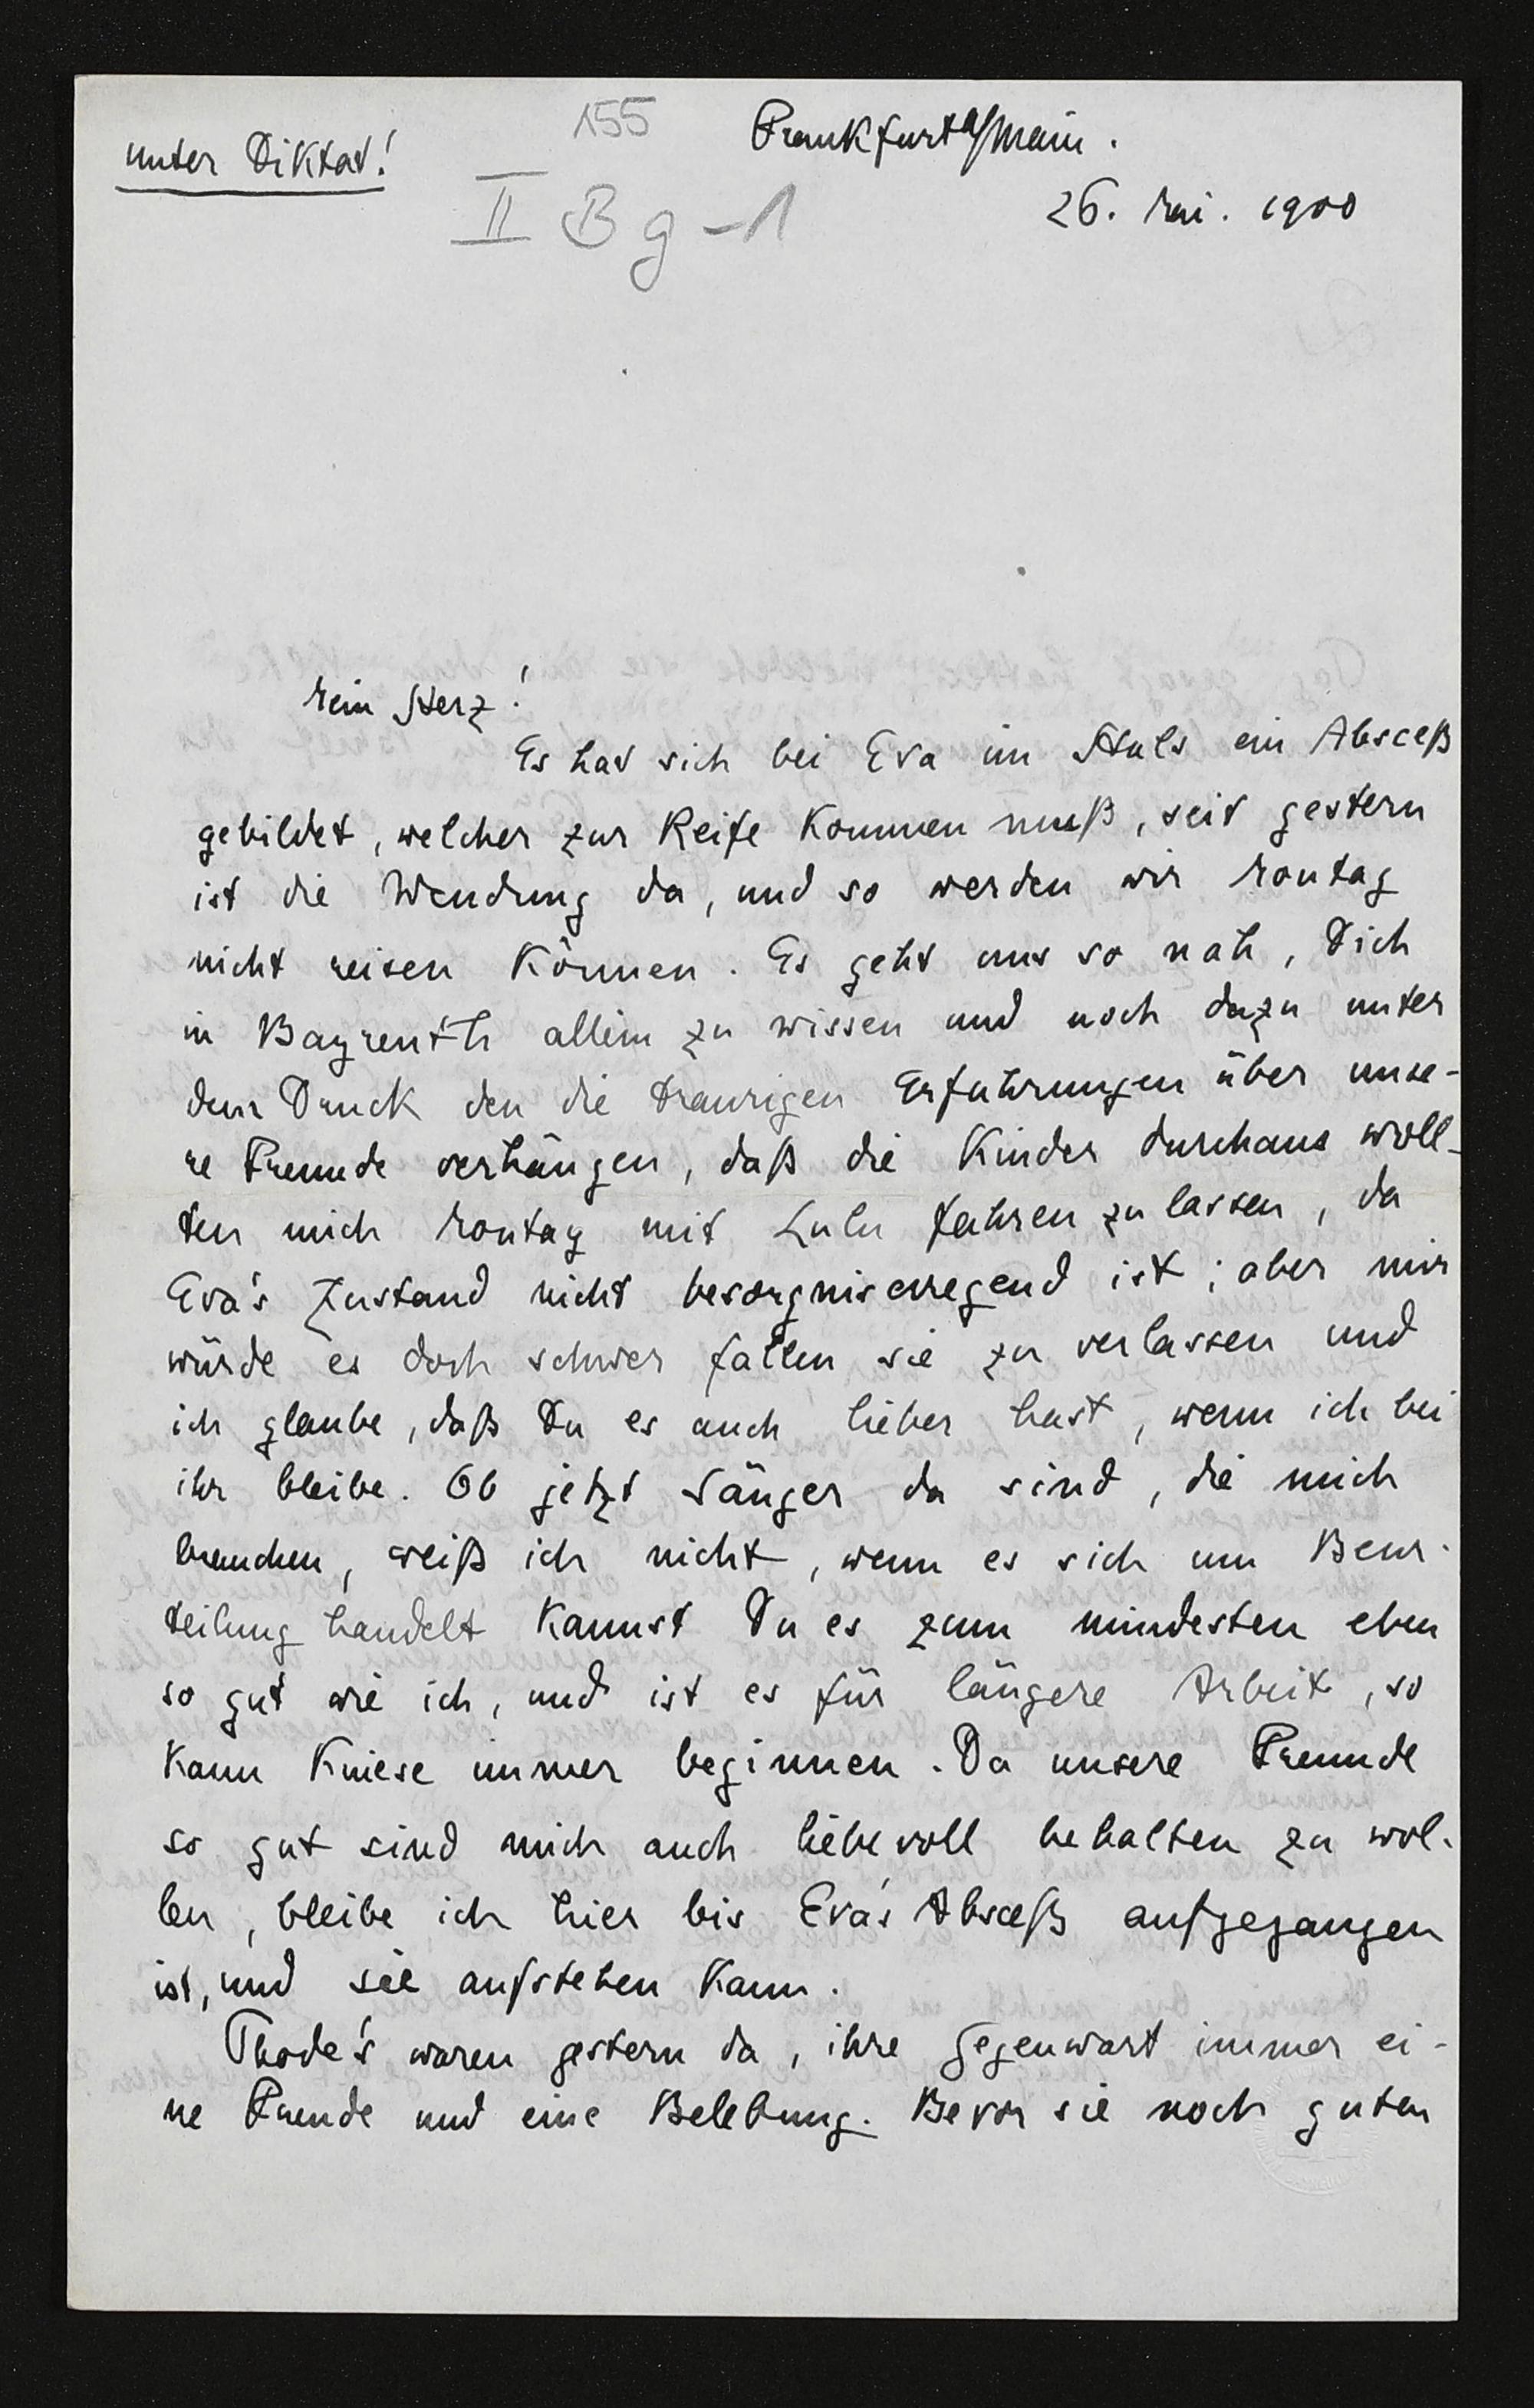 155
Frankfurt a/Main.
unter Diktat!
26. Mai. 1900
II B g -1
Mein Herz!
Es hat sich bei Eva im Hals ein Absceß
gebildet, welcher zur Reife kommen muß, seit gestern
ist die Wendung da, und so werden wir Montag
nicht reisen können. Es geht uns so nah, Dich
in Bayreuth allein zu wissen und noch dazu unter
dem Druck den die traurigen Erfahrungen über unse-
re Freunde verhängen, daß die Kinder durchaus woll-
ten mich Montag mit Lulu fahren zu lassen, da
Eva's Zustand nicht besorgniserregend ist; aber mir
würde es doch schwer fallen sie zu verlassen und
ich glaube, daß Du es auch lieber hast, wenn ich bei
ihr bleibe. Ob jetzt Sänger da sind, die mich
brauchen, weiß ich nicht, wenn es sich um Beur-
teilung handelt kannst Du es zum mindesten eben
so gut wie ich, und ist es für längere Arbeit, so
kann Kniese immer beginnen. Da unsere Freunde
so gut sind mich auch liebevoll behalten zu wol-
len, bleibe ich hier bis Eva's Absceß aufgegangen
ist, und sie aufstehen kann.
Thode's waren gestern da, ihre Gegenwart immer ei-
ne Freude und eine Belebung. Bevor sie noch guten